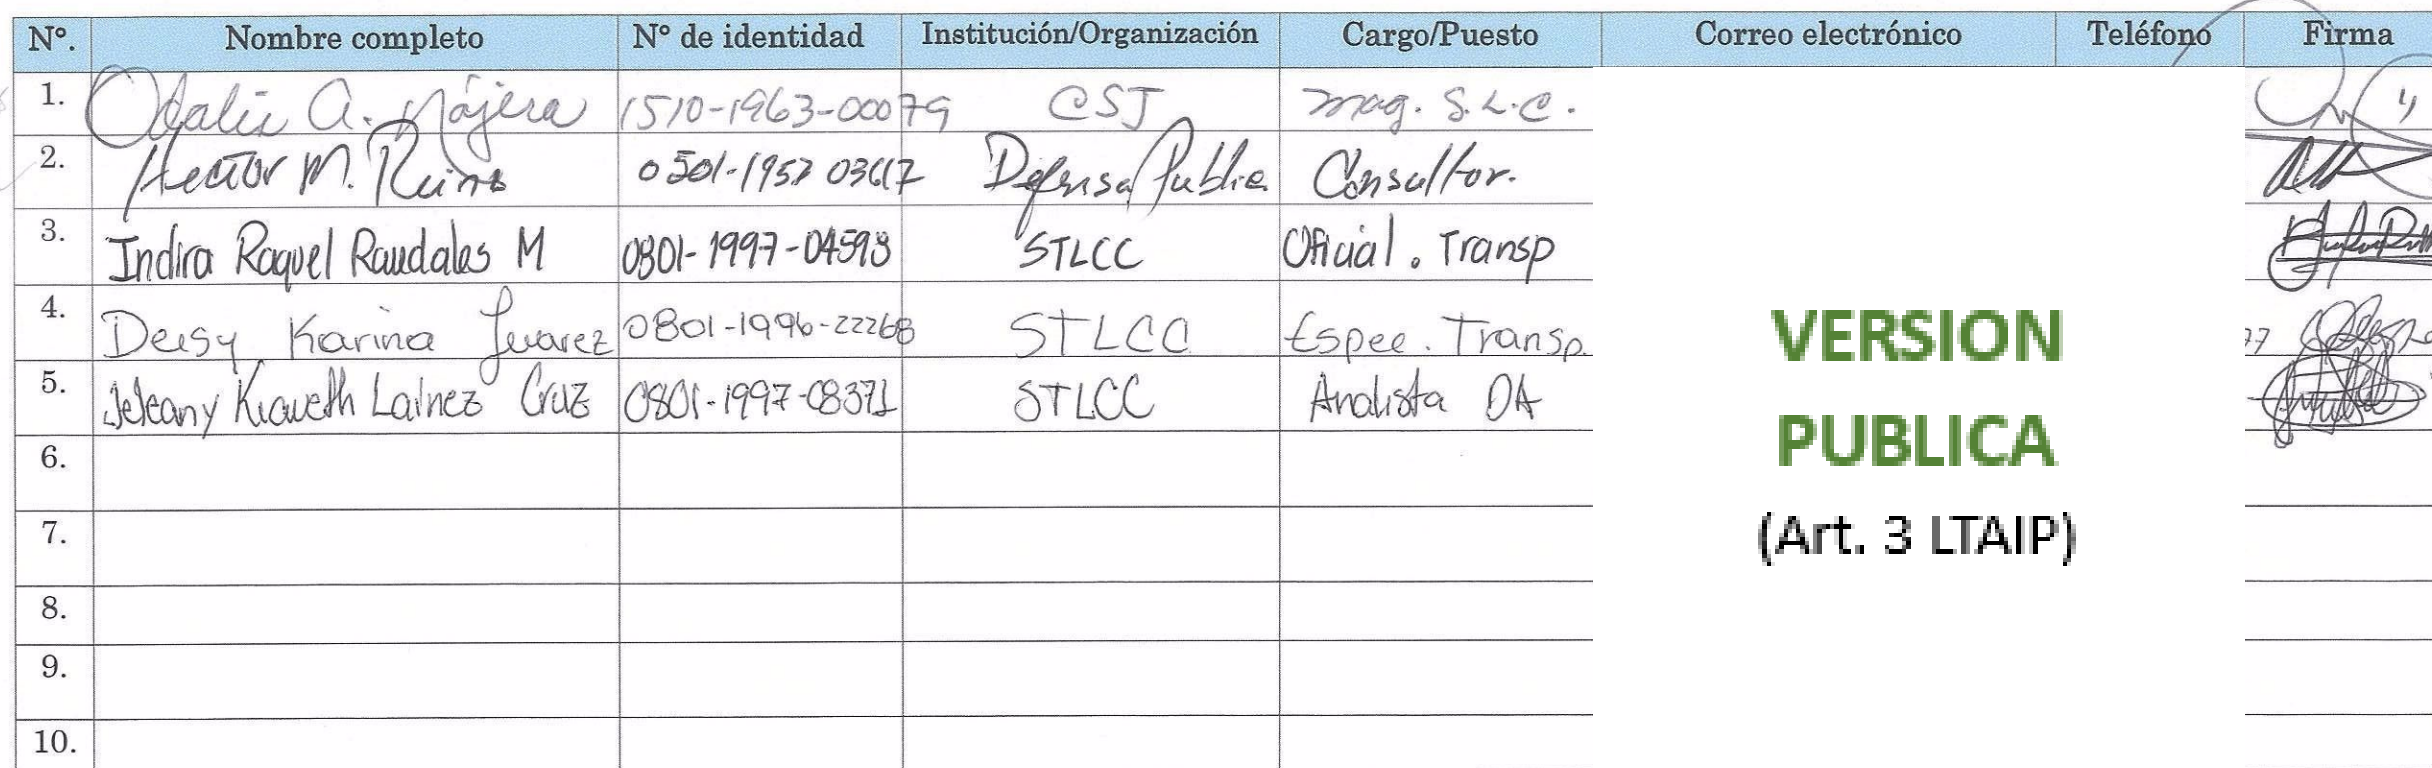 Nº. Nombre completo Nº de identidad Institución/Organización Cargo/Puesto Correo electrónico Teléfono Firma
1. Odalis A. Nájera 1510-1963-00079 CSJ Mag. S.L.C.
2. Hector M. 0501-1952 03617 Defensa Publica Consultor.
3. Indira Raquel Raudales M 0801-1997-04593 STLCC Oficial. Transp
4. Deisy Karina Juarez 0801-1996-22268 STLCC Espec. Transp.
5. Lainez Cruz 0801-1997-08371 STLCC Analista DA
6.
7.
8.
9.
10.
VERSION
PUBLICA
(Art. 3 LTAIP)